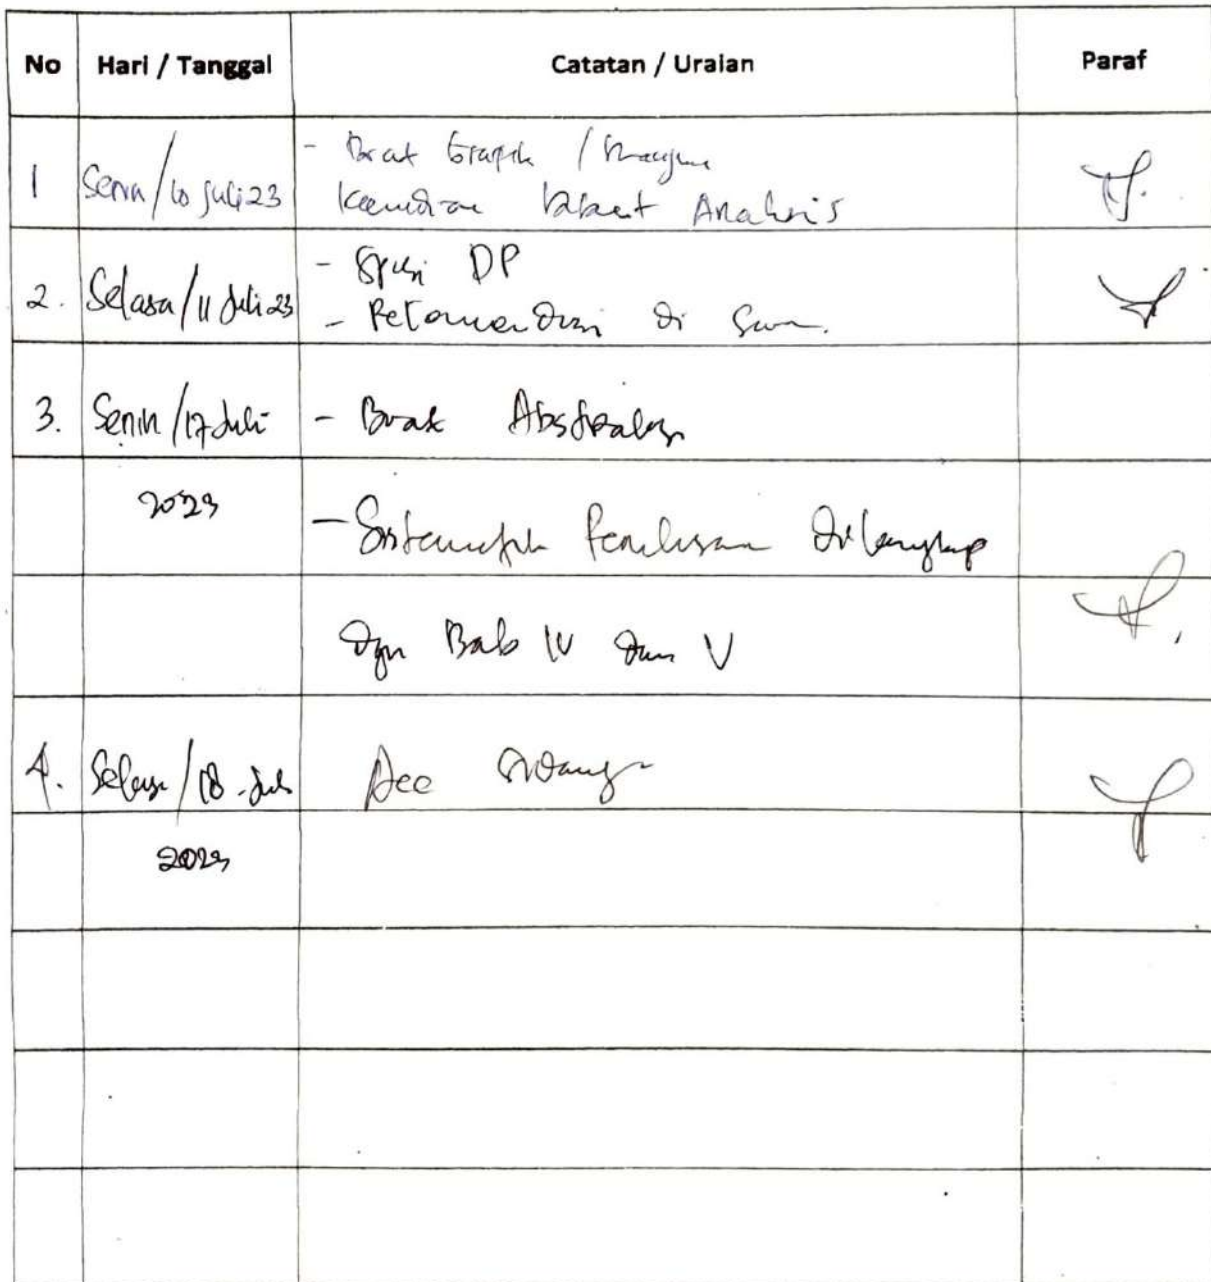 No Hari / Tanggal Catatan / Uraian Paraf
1 Senin/10 Juli 23 - Buat Grafik /
Kemudian Analisis
2. Selasa/11 Juli 23 - DP
- Rekomendasi di
3. Senin/17 Juli - Buat Abstraknya
2023 - Sistematik Penulisan Dilengkapi
Dgn Bab IV Dan V
4. Selasa/18 - Juli Acc Sidang
2023